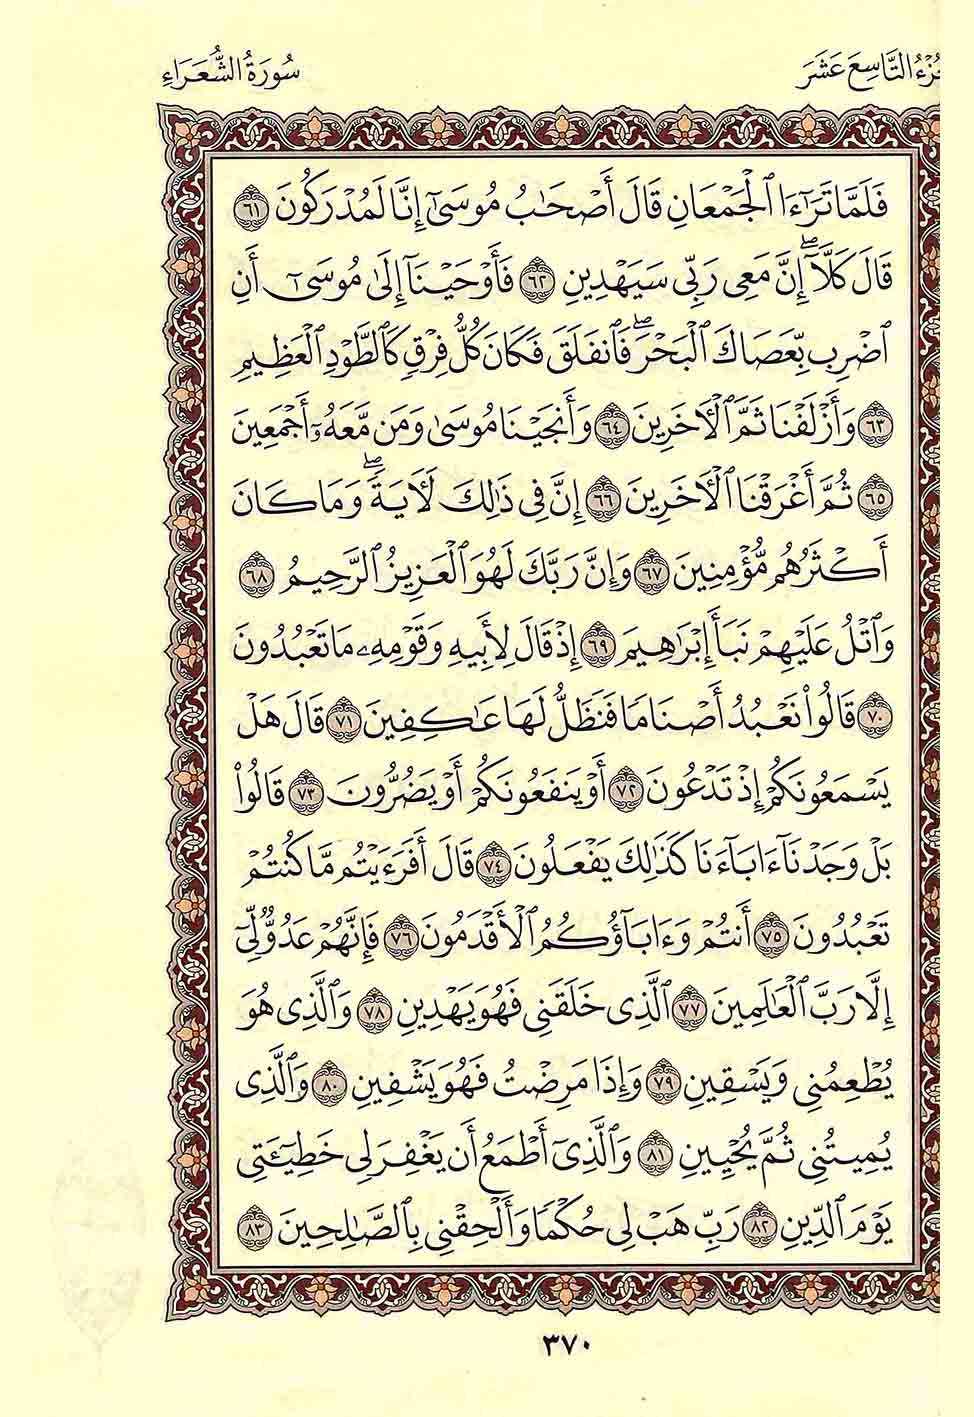 جزء التاسع عشر سُورَةُ الشُّعَرَاءِ
فَلَمَّا تَرَٰٓءَا ٱلۡجَمۡعَانِ قَالَ أَصۡحَٰبُ مُوسَىٰٓ إِنَّا لَمُدۡرَكُونَ ٦١
قَالَ كَلَّآۖ إِنَّ مَعِيَ رَبِّي سَيَهۡدِينِ ٦٢ فَأَوۡحَيۡنَآ إِلَىٰ مُوسَىٰٓ أَنِ
ٱضۡرِب بِّعَصَاكَ ٱلۡبَحۡرَۖ فَٱنفَلَقَ فَكَانَ كُلُّ فِرۡقٖ كَٱلطَّوۡدِ ٱلۡعَظِيمِ
٦٣ وَأَزۡلَفۡنَا ثَمَّ ٱلۡأٓخَرِينَ ٦٤ وَأَنجَيۡنَا مُوسَىٰ وَمَن مَّعَهُۥٓ أَجۡمَعِينَ
٦٥ ثُمَّ أَغۡرَقۡنَا ٱلۡأٓخَرِينَ ٦٦ إِنَّ فِي ذَٰلِكَ لَأٓيَةٗۖ وَمَا كَانَ
أَكۡثَرُهُم مُّؤۡمِنِينَ ٦٧ وَإِنَّ رَبَّكَ لَهُوَ ٱلۡعَزِيزُ ٱلرَّحِيمُ ٦٨
وَٱتۡلُ عَلَيۡهِمۡ نَبَأَ إِبۡرَٰهِيمَ ٦٩ إِذۡ قَالَ لِأَبِيهِ وَقَوۡمِهِۦ مَا تَعۡبُدُونَ
٧٠ قَالُواْ نَعۡبُدُ أَصۡنَامٗا فَنَظَلُّ لَهَا عَٰكِفِينَ ٧١ قَالَ هَلۡ
يَسۡمَعُونَكُمۡ إِذۡ تَدۡعُونَ ٧٢ أَوۡ يَنفَعُونَكُمۡ أَوۡ يَضُرُّونَ ٧٣ قَالُواْ
بَلۡ وَجَدۡنَآ ءَابَآءَنَا كَذَٰلِكَ يَفۡعَلُونَ ٧٤ قَالَ أَفَرَءَيۡتُم مَّا كُنتُمۡ
تَعۡبُدُونَ ٧٥ أَنتُمۡ وَءَابَآؤُكُمُ ٱلۡأَقۡدَمُونَ ٧٦ فَإِنَّهُمۡ عَدُوّٞ لِّيٓ
إِلَّا رَبَّ ٱلۡعَٰلَمِينَ ٧٧ ٱلَّذِي خَلَقَنِي فَهُوَ يَهۡدِينِ ٧٨ وَٱلَّذِي هُوَ
يُطۡعِمُنِي وَيَسۡقِينِ ٧٩ وَإِذَا مَرِضۡتُ فَهُوَ يَشۡفِينِ ٨٠ وَٱلَّذِي
يُمِيتُنِي ثُمَّ يُحۡيِينِ ٨١ وَٱلَّذِيٓ أَطۡمَعُ أَن يَغۡفِرَ لِي خَطِيٓـَٔتِي
يَوۡمَ ٱلدِّينِ ٨٢ رَبِّ هَبۡ لِي حُكۡمٗا وَأَلۡحِقۡنِي بِٱلصَّٰلِحِينَ ٨٣
٣٧٠